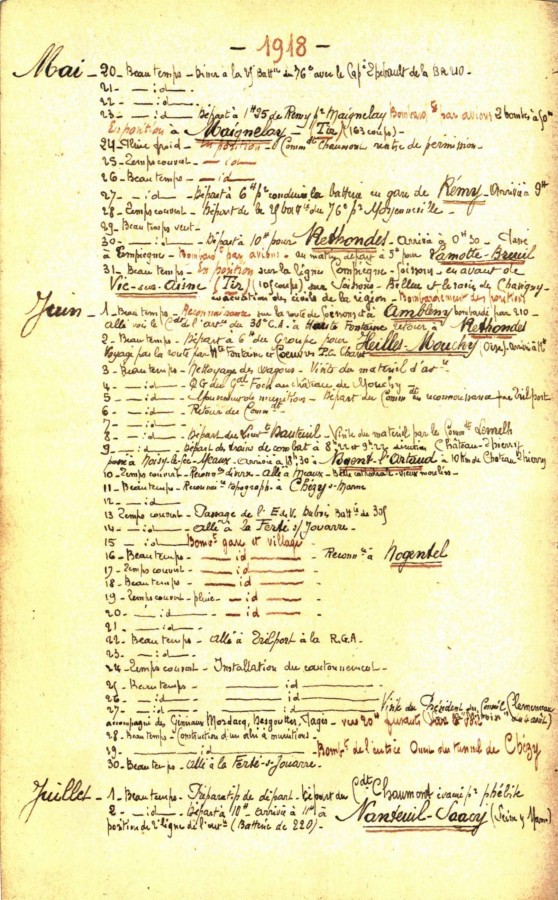 - 1918 -
Mai - 20 - Beau temps - Dîner à la Batt du 76e avec le Cap de la
21 - - id -
22 - - id -
23 - - id - Départ à 1h35 de Remy pr Maignelay par avions 2 bombes à 50m
En position à Maignelay - (Tir) (163 coups) -
24 - froid - En position - Commdt Chaumont rentre de permission -
25 - Temps couvert - - id -
26 - Beau temps - - id -
27 - - id - Départ à 6h pr conduire la batterie en gare de Rémy - Arrivée à 9h
28 - Temps couvert - Départ de la batt du 76e pr Moyenneville -
29 - Beau temps vent -
30 - - id - Départ à 10h pour Rethondes - Arrivée à 0h30 -
à Compiègne - Bombard. par avions - au matin départ à 5h pour Lamotte-Breuil
31 - Beau temps - En position sur la ligne Compiègne - Soissons - en avant de
Vic-sur-Aisne (Tir) (105 coups) sur Soissons - et ravin de Chavigny -
évacuation des civils de la région - Bombardement des positions
Juin - 1 - Beau temps - Reconnaissance sur la route de Soissons et à Ambleny bombardé par 210 -
allé voir le Cdt de l'art. du 30e C.A. à Haute Fontaine retour à Rethondes
2 - Beau temps - Départ à 6h du Groupe pour Heilles-Mouchy
Voyagé par la route par Hte Fontaine et Coeuvres
3 - Beau temps - Nettoyage des wagons - Visite du matériel d'art
4 - - id - Q.G du Gal Foch au château de Mouchy
5 - - id - de munitions - Départ du Commdt en reconnaissance pr Trilport
6 - - id - Retour du Commdt -
7 - - id -
8 - - id - Départ du Lieut Bauteuil - Visite du matériel par le Commt
9 - - id - Départ des trains de combat à 8h22 et 9h22 direction Château-Thierry
passé à Noisy-le-Sec - Meaux - arrivée à 18h30 à Nogent l'Artaud à 10 km de Château Thierry
10 - Temps couvert - Reconn divers - allé à Meaux - Belle cathédrale - vieux moulins -
11 - Beau temps - Reconnais topograph. à Chézy s/ Marne
12 - - id -
13 - Temps couvert - Passage de l'E.d.V. Dubois Batt de 305
14 - - id - allé à la Ferté s/ Jouarre -
15 - - id - Bombt gare et village
16 - Beau temps - - id - - Reconnt à Nogentel
17 - Temps couvert - - id - -
18 - Beau temps - - id - -
19 - Temps couvert - pluie - - id - -
20 - - id - - id - -
21 - - id -
22 - Beau temps - allé à Trilport à la R.G.A -
23 - - id -
24 - Temps couvert - Installation du cantonnement -
25 - Beau temps - - id -
26 - - id - - id -
27 - - id - - id - Visite du Président du Conseil Clemenceau
accompagné des Généraux Mordacq, Degoutte,
28 - Beau temps - Construction d'un abri à munitions -
29 - - id - Bombt de l'entrée Ouest du tunnel de Chézy
30 - Beau temps - allé à la Ferté-s-Jouarre -
Juillet - 1 - Beau temps - Préparatif de départ - Départ du Cdt Chaumont évacué pr phlébite
2 - - id - Départ à 10h - arrivée à 11h à Nanteuil-Saacy (Seine y Marne)
position de 2e ligne de l'ouest (Batterie de 220) -